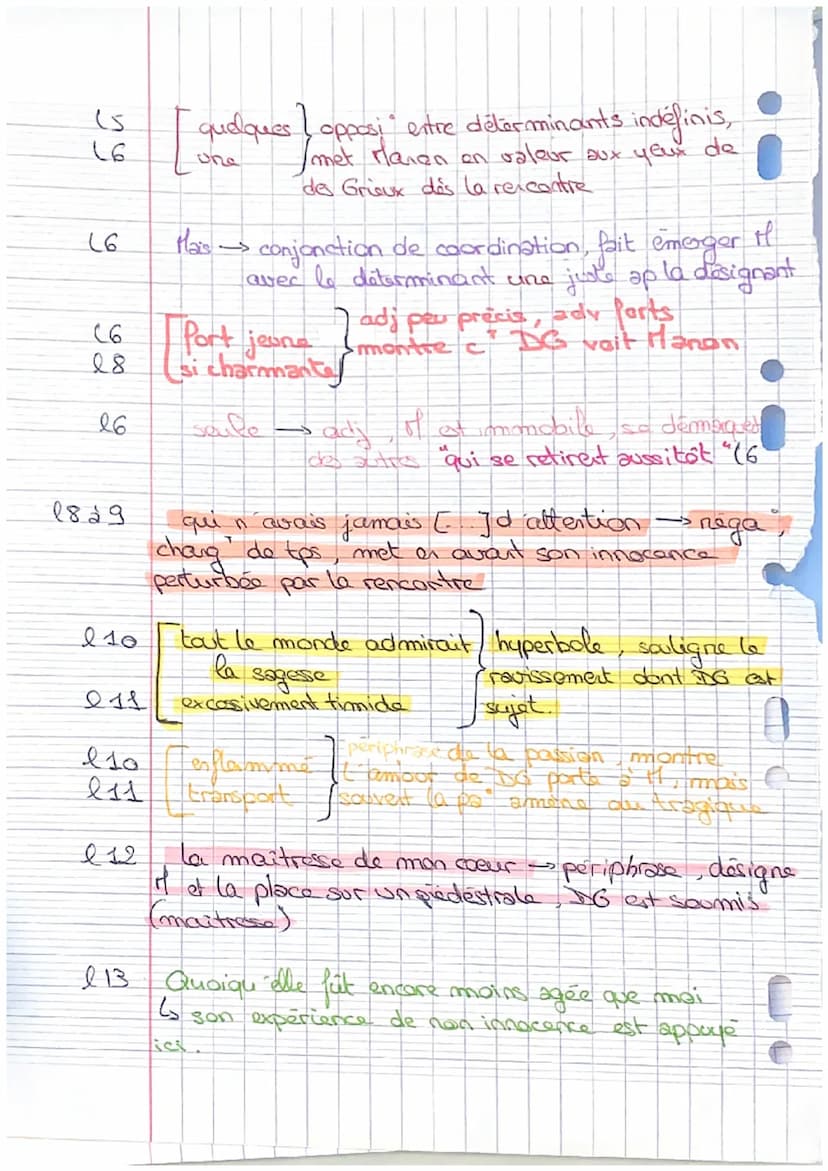 l5 [ quelques } opposi° entre déterminants indéfinis,
l6 [ une } met Manon en valeur aux yeux de
des Grieux dès la rencontre
l6 Mais → conjonction de coordination, fait émerger M
avec le déterminant une juste ap la désignant
l6 [ Fort jeune } adj peu précis, adv forts
l8 si charmante } montre cT DG voit Manon
l6 seule → adj, M est immobile, se démarque
des autres "qui se retirent aussitôt" l6
l8 à 9 qui n'avais jamais [...] d'attention → néga°,
changT de tps, met en avant son innocence
perturbée par la rencontre
l10 [ tout le monde admirait } hyperbole, souligne le
la sagese ravissement dont DG est
l11 excesivement timide sujet.
l10 [ enflammé } périphrase de la passion, montre
l11 transport } l'amour de DG porte à M, mais
souvent la pa° amène au tragique
l12 la maîtresse de mon coeur → périphrase, désigne
M et la place sur un piédestrale, DG est soumis
(maîtresse)
l13 Quoiqu'elle fût encore moins agée que moi
↳ son expérience de non innocence est appuyé
ici.